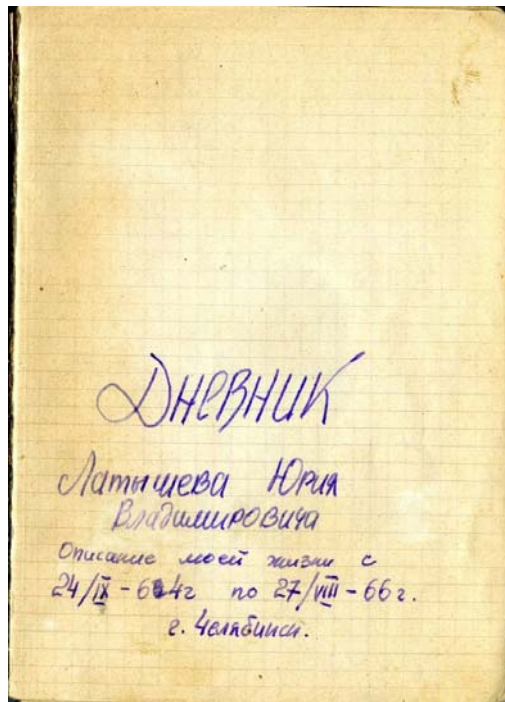 Дневник
Латышева Юрия
Владимировича
Описание моей жизни с
24/IX - 64г по 27/VIII - 66г.
г. Челябинск.